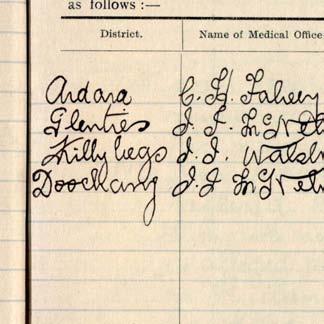 as follows :—
District. Name of Medical Office
Ardara C. H. Fahey
Glenties J. F. McNel
Killybegs J. J. Walsh
Doochary J. J McNel